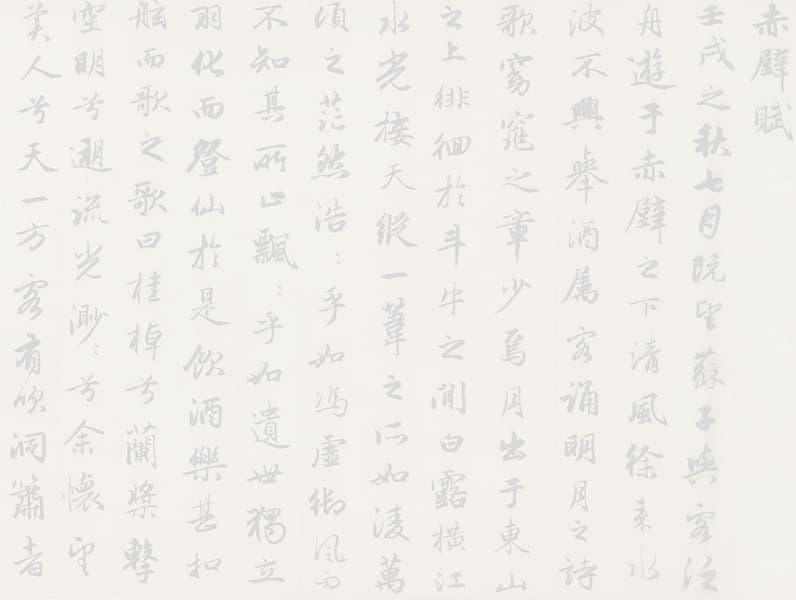 赤壁賦
壬戌之秋七月既望蘇子與客泛
舟遊于赤壁之下清風徐来水
波不興舉酒属客誦明月之詩
歌窈窕之章少焉月出于東山
之上徘徊於斗牛之間白露橫江
水光接天縱一葦之所如凌萬
頃之茫然浩〻乎如馮虛御風而
不知其所止飄〻乎如遺世獨立
羽化而登仙於是飲酒樂甚扣
舷而歌之歌曰桂棹兮蘭槳擊
空明兮遡流光渺〻兮余懷望
美人兮天一方客有吹洞簫者